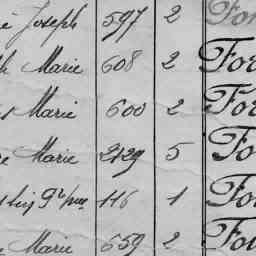 Joseph 597 2 For
Marie 608 2 For
Marie 600 2 For
Marie 2129 5 Fo
116 1 Fo
Marie 659 2 Fo